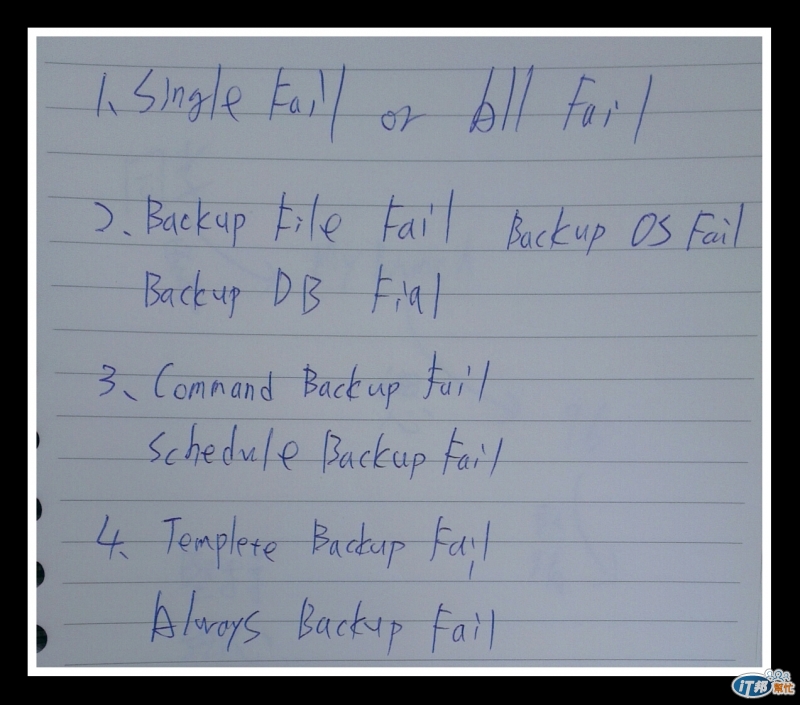 1、Single Fail or All Fail
2、Backup File Fail Backup OS Fail
Backup DB Fial
3、Command Backup Fail
Schedule Backup Fail
4、Templete Backup Fail
Always Backup Fail
iT邦幫忙